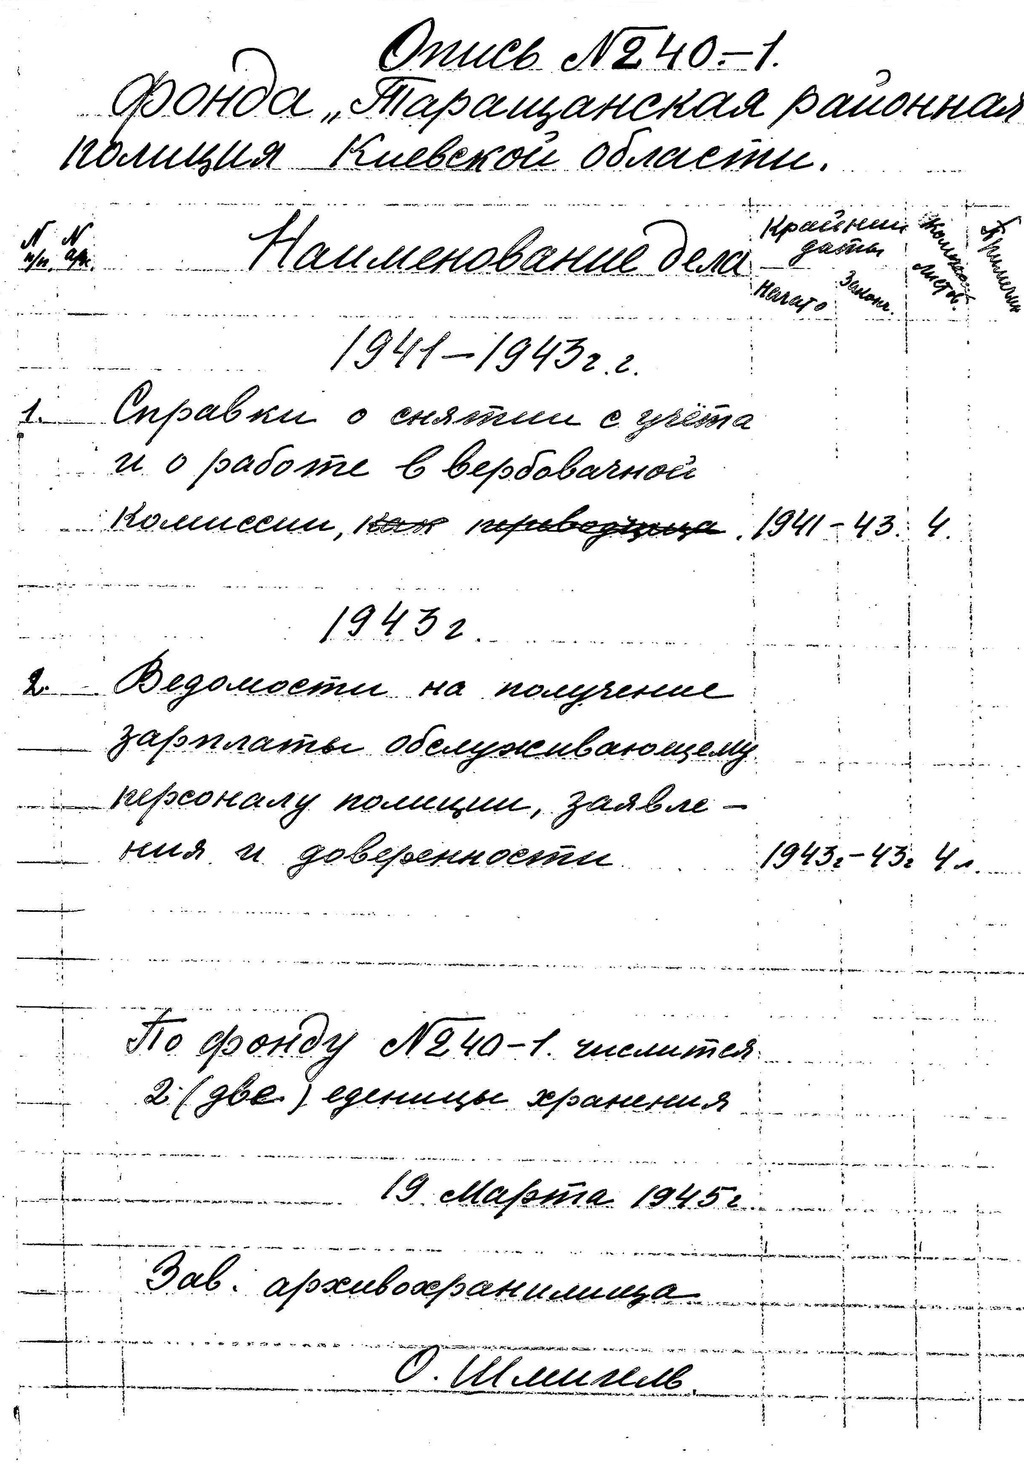 Опись № 240-1.
фонда „Таращанская районная
полиция Киевской области.
N п/п. N а/к. Наименование дела Крайние даты Начато Законч. Количест листов. Примечан
1941-1943г.г.
1. Справки о снятии с учёта
и о работе в вербовачной
комиссии, как переводчица. 1941-43. 4.
1943г.
2. Ведомости на получение
зарплаты обслуживающему
персоналу полиции, заявле-
ния и доверенности 1943г-43г 4 л.
По фонду № 240-1. числится
2 (две) еденицы хранения
19 Марта 1945г.
Зав. архивохранилища
О. Шмигель.